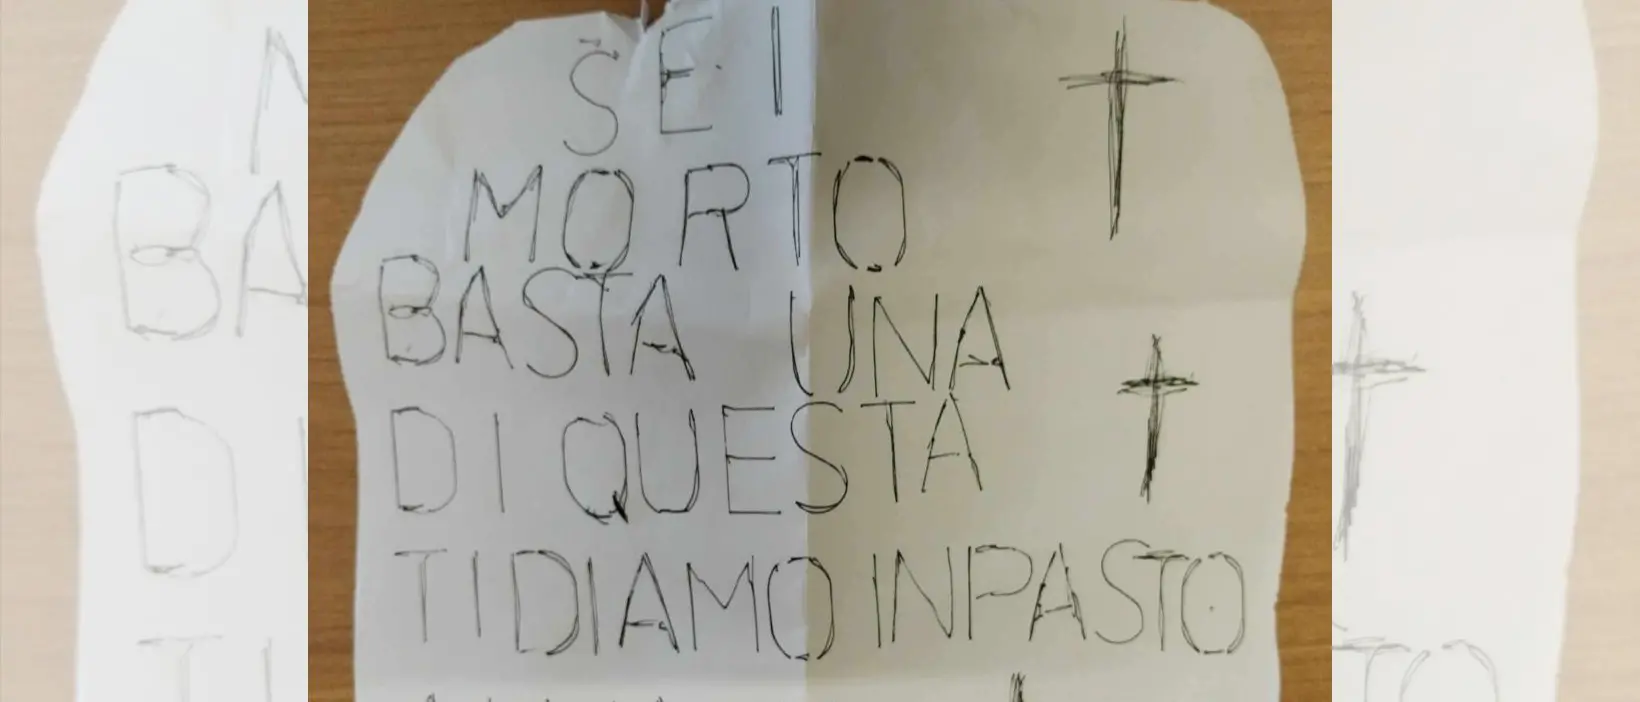 SEI
MORTO
BASTA UNA
DI QUESTA
TI DIAMO IN PASTO